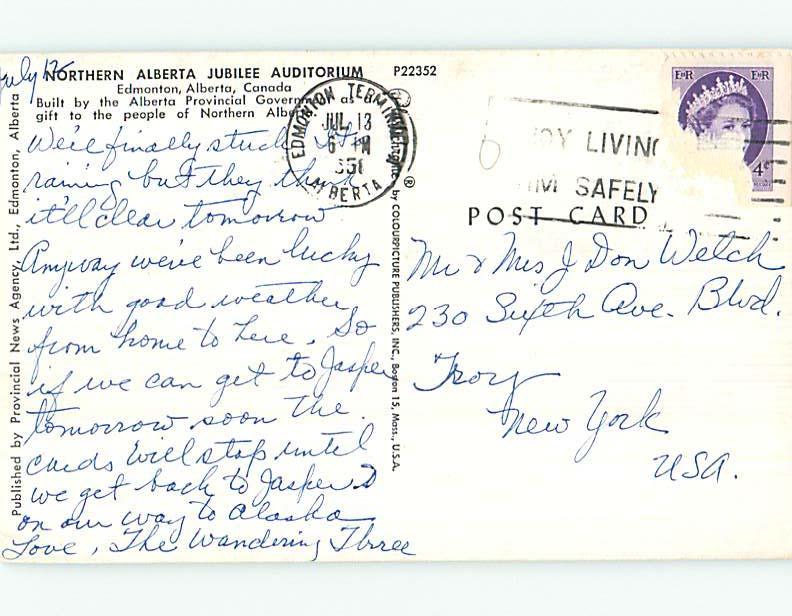 July 12
NORTHERN ALBERTA JUBILEE AUDITORIUM
Edmonton, Alberta, Canada
Built by the Alberta Provincial Government as a
gift to the people of Northern Alberta
P22352
We're finally stuck. It's
raining but they think
it'll clear tomorrow
Anyway we've been lucky
with good weather
from home to here. So
if we can get to Jasper
tomorrow soon the
cards will stop until
we get back to Jasper
on our way to Alaska
Love, The Wandering Three
Published by Provincial News Agency, Ltd., Edmonton, Alberta
by COLOURPICTURE PUBLISHERS, INC., Boston 15, Mass., U.S.A.
®
EDMONTON TERMINAL
JUL 13
6 M
ALBERTA
JOY LIVING
SAFELY
EIIR EIIR
4c
POST CARD
Mr & Mrs J Don Welch
230 Sixth Ave. Blvd.
Troy
New York
USA.